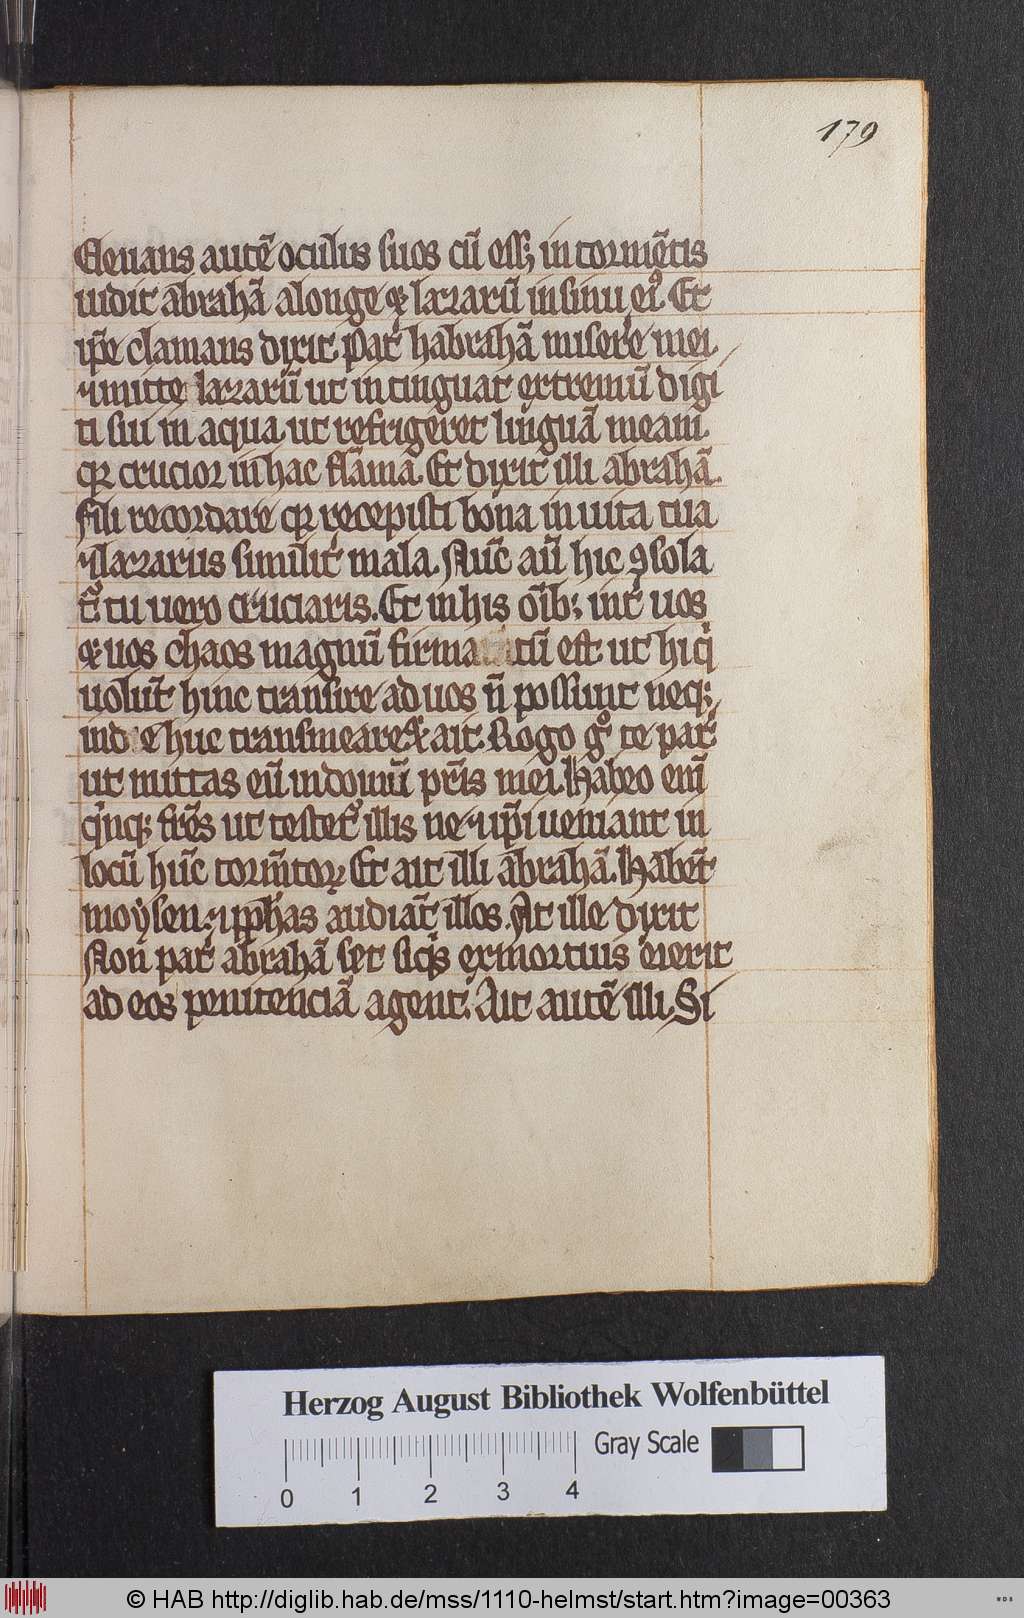 179
Eleuans autē oculus suos cū ess; in tormētis
uidit abrahā alonge ⁊ lazarū in sinu eiꝰ. Et
ip̄e clamans dixit. Pat̾ habrahā misere mei
⁊ mitte lazarū ut intinguat extremū digi
ti sui in aqua ut refrigeret linguā meam.
qꝛ crucior in hac flāma. Et dixit illi abrahā.
Fili recordare qꝛ recepisti bona in uita tua
⁊ lazarus similit̾ mala. Nūc aū hic ꝯsola
t᷑ tu uero cruciaris. Et in his oīb; int̾ uos
⁊ uos chaos magnū firma tū est ut hi qͥ
uolūt hinc transire ad uos n̄ possunt neq;
ind e huc transmeare. ⁊ ait. Rogo gͦ te pat̾
ut mittas eū in domū pr̄is mei. Habeo enī
qͥnq; fr̄es ut testet᷑ illis ne ⁊ ip̄i ueniant in
locū hūc torm̄toꝝ Et ait illi abrahā. Habēt
moysen ⁊ ꝓph̄as audiāt illos. At ille dixit
Non pat̾ abrahā set si qͥs ex mortuis ierit
ad eos penitenciā agent. Ait autē illi. Si
Herzog August Bibliothek Wolfenbüttel
Gray Scale
0 1 2 3 4
© HAB http://diglib.hab.de/mss/1110-helmst/start.htm?image=00363